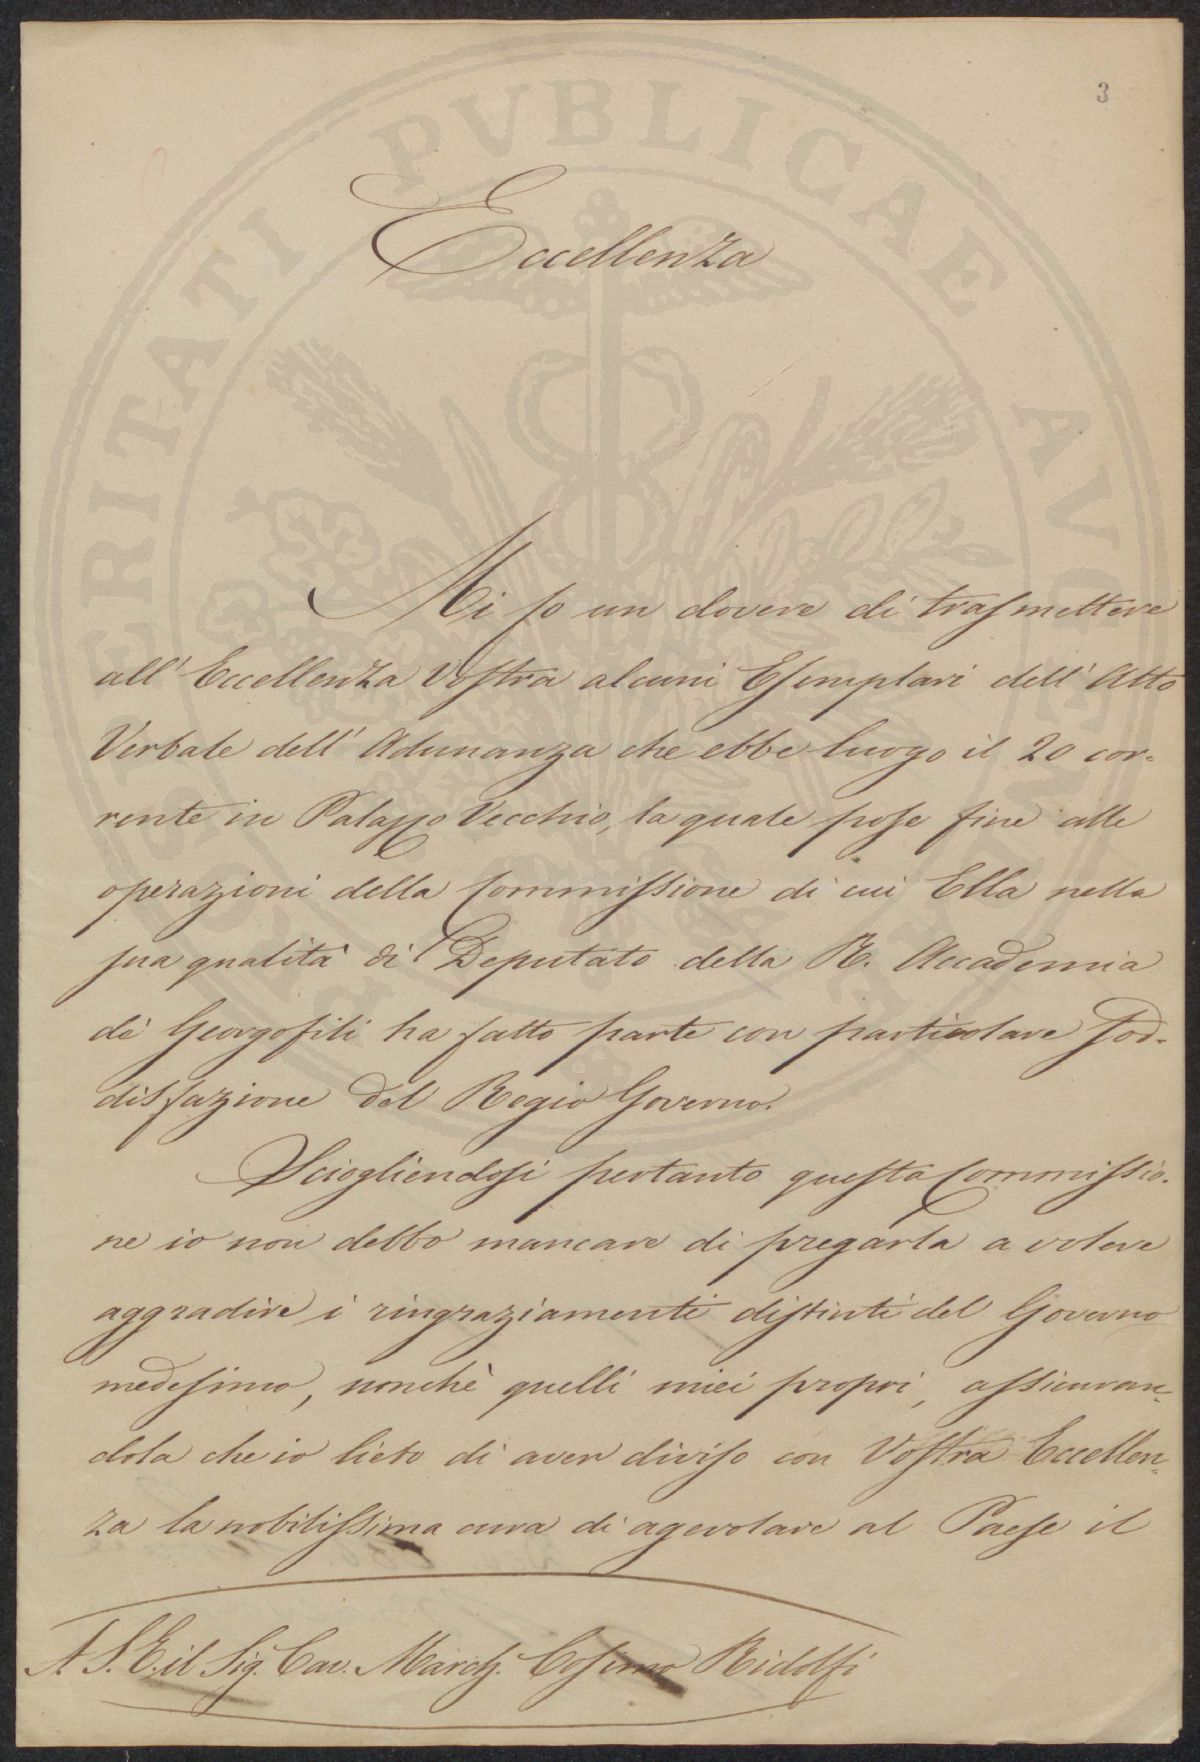 3
Eccellenza
Mi fo un dovere di trasmettere
all' Eccellenza Vostra alcuni Esemplari dell' Atto
Verbale dell' Adunanza che ebbe luogo il 20 cor-
rente in Palazzo Vecchio, la quale pose fine alle
operazioni della Commissione di cui Ella nella
sua qualità di Deputato della R. Accademia
de' Georgofili ha fatto parte con particolare sod-
disfazione del Regio Governo.
Sciogliendosi pertanto questa Commissio-
ne io non debbo mancare di pregarla a volere
aggradire i ringraziamenti distinti del Governo
medesimo, nonchè quelli miei propri, assicuran-
dola che io lieto di aver diviso con Vostra Eccellen-
za la nobilissima cura di agevolare al Paese il
A S. E. il Sig. Cav. March. Cosimo Ridolfi
PROSPERITATI PVBLICAE AVGENDAE